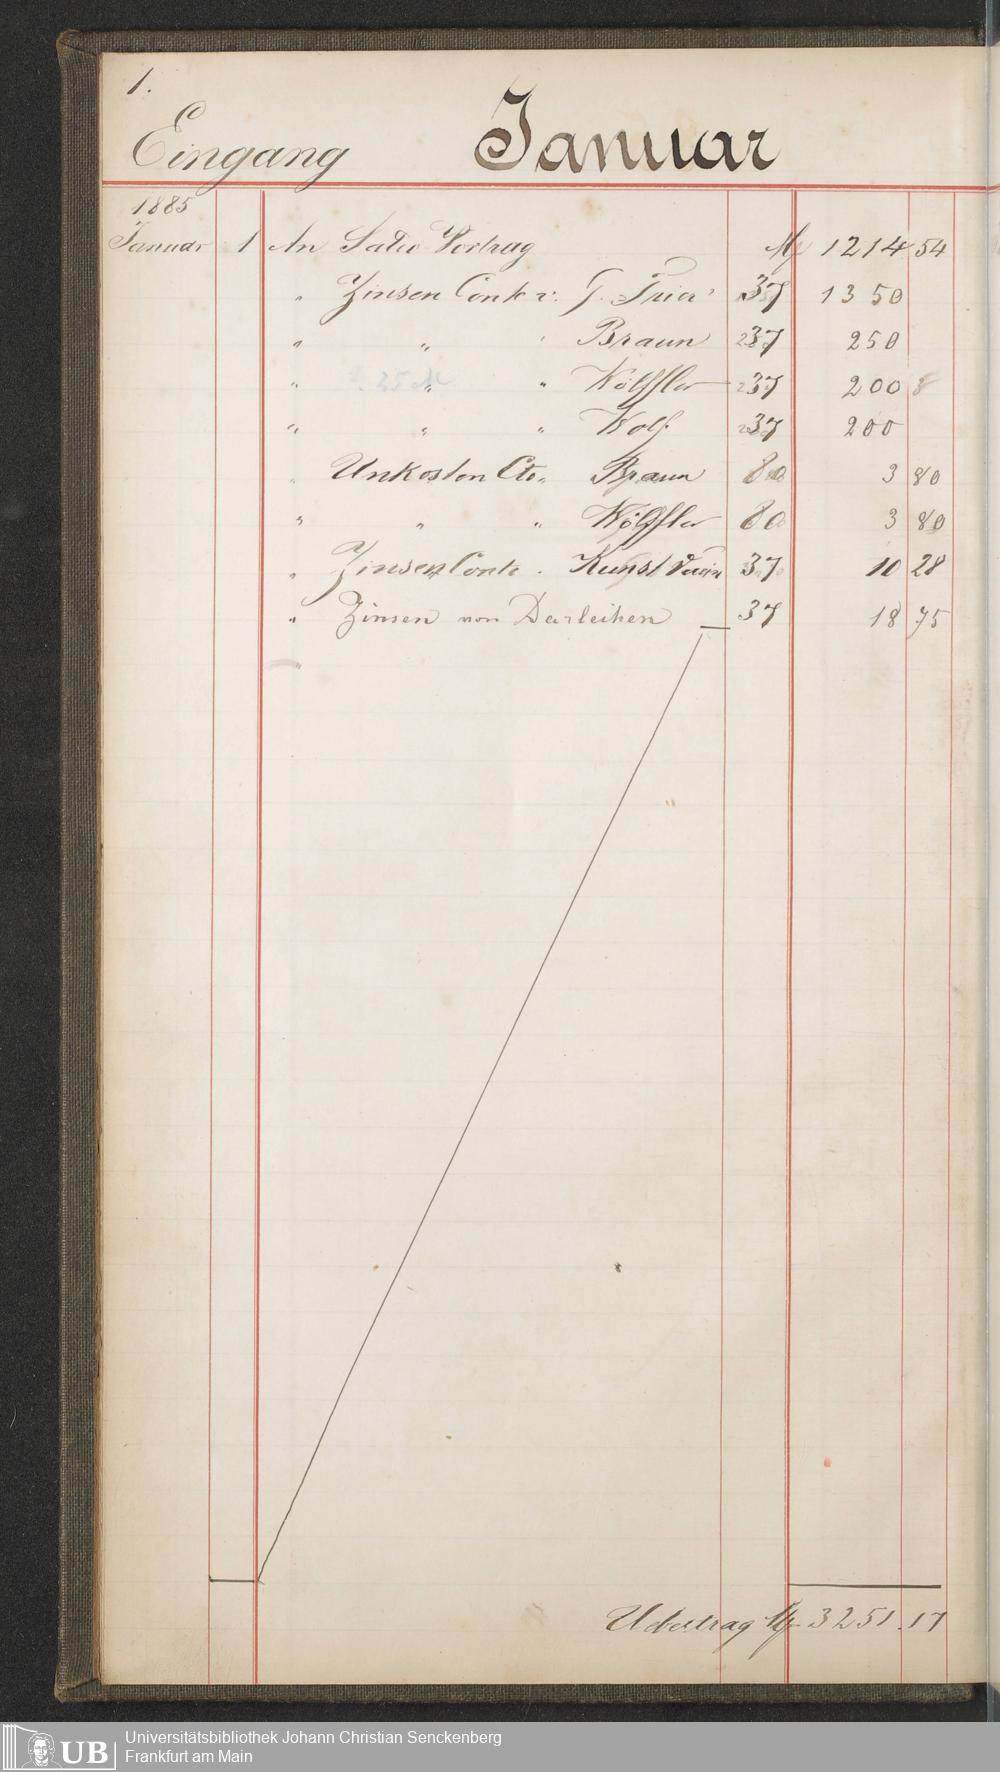 1.
Eingang Januar
1885
Januar 1 An Saldo Vortrag M 1214 54
" Zinsen Conto v. G. Trier 37 1350
" " " Braun 37 250
" " " Wölffler 37 200
" " " Wolf 37 200
" Unkosten Cto " Braun 80 3 80
" " " Wölffler 80 3 80
" Zinsen Conto . Kunst Verein 37 10 28
" Zinsen von Darleihen 37 18 75
Uebertrag M 3251.17
Universitätsbibliothek Johann Christian Senckenberg
UB Frankfurt am Main